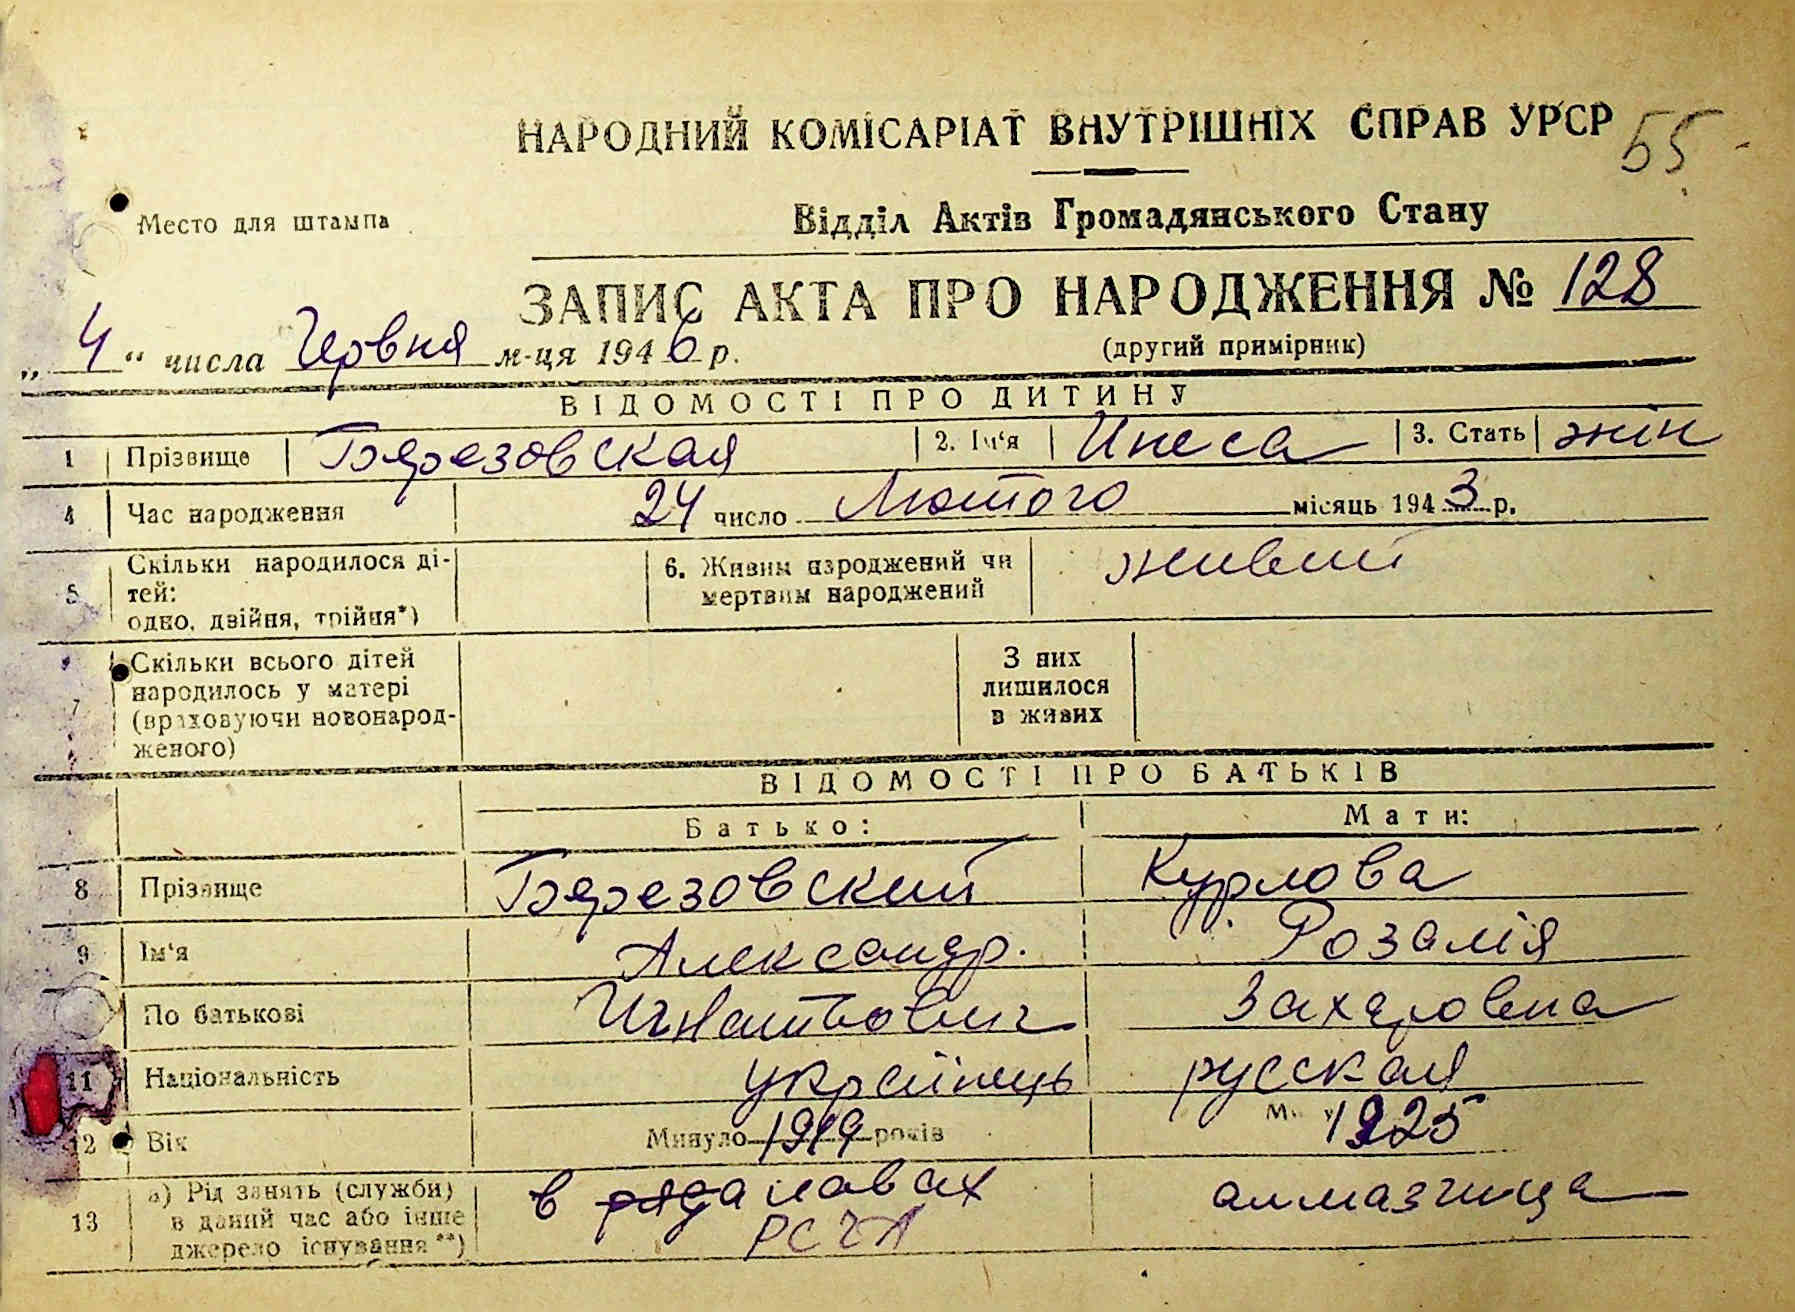 НАРОДНИЙ КОМІСАРІАТ ВНУТРІШНІХ СПРАВ УРСР
55
Место для штампа
Відділ Актів Громадянського Стану
ЗАПИС АКТА ПРО НАРОДЖЕННЯ № 128
„ 4 “ числа Червня м-ця 1946 р.
(другий примірник)
ВІДОМОСТІ ПРО ДИТИНУ
1 Прізвище Березовская 2. Ім‘я Инеса 3. Стать жін
4 Час народження 24 число Лютого місяць 1943 р.
5 Скільки народилося ді-
тей:
одно, двійня, трійня*)
6. Живим народжений чи
мертвим народжений
живий
7 Скільки всього дітей
народилось у матері
(враховуючи новонарод-
женого)
З них
лишилося
в живих
ВІДОМОСТІ ПРО БАТЬКІВ
Батько: Мати:
8 Прізвище Березовский Курлова
9 Ім‘я Александр. Розалія
По батькові Захаровна
11 Національність українець русская
12 Вік Минуло 1919 років 1925
13 а) Рід занять (служби)
в даний час або інше
джерело існування**)
в лавах
РСЧА